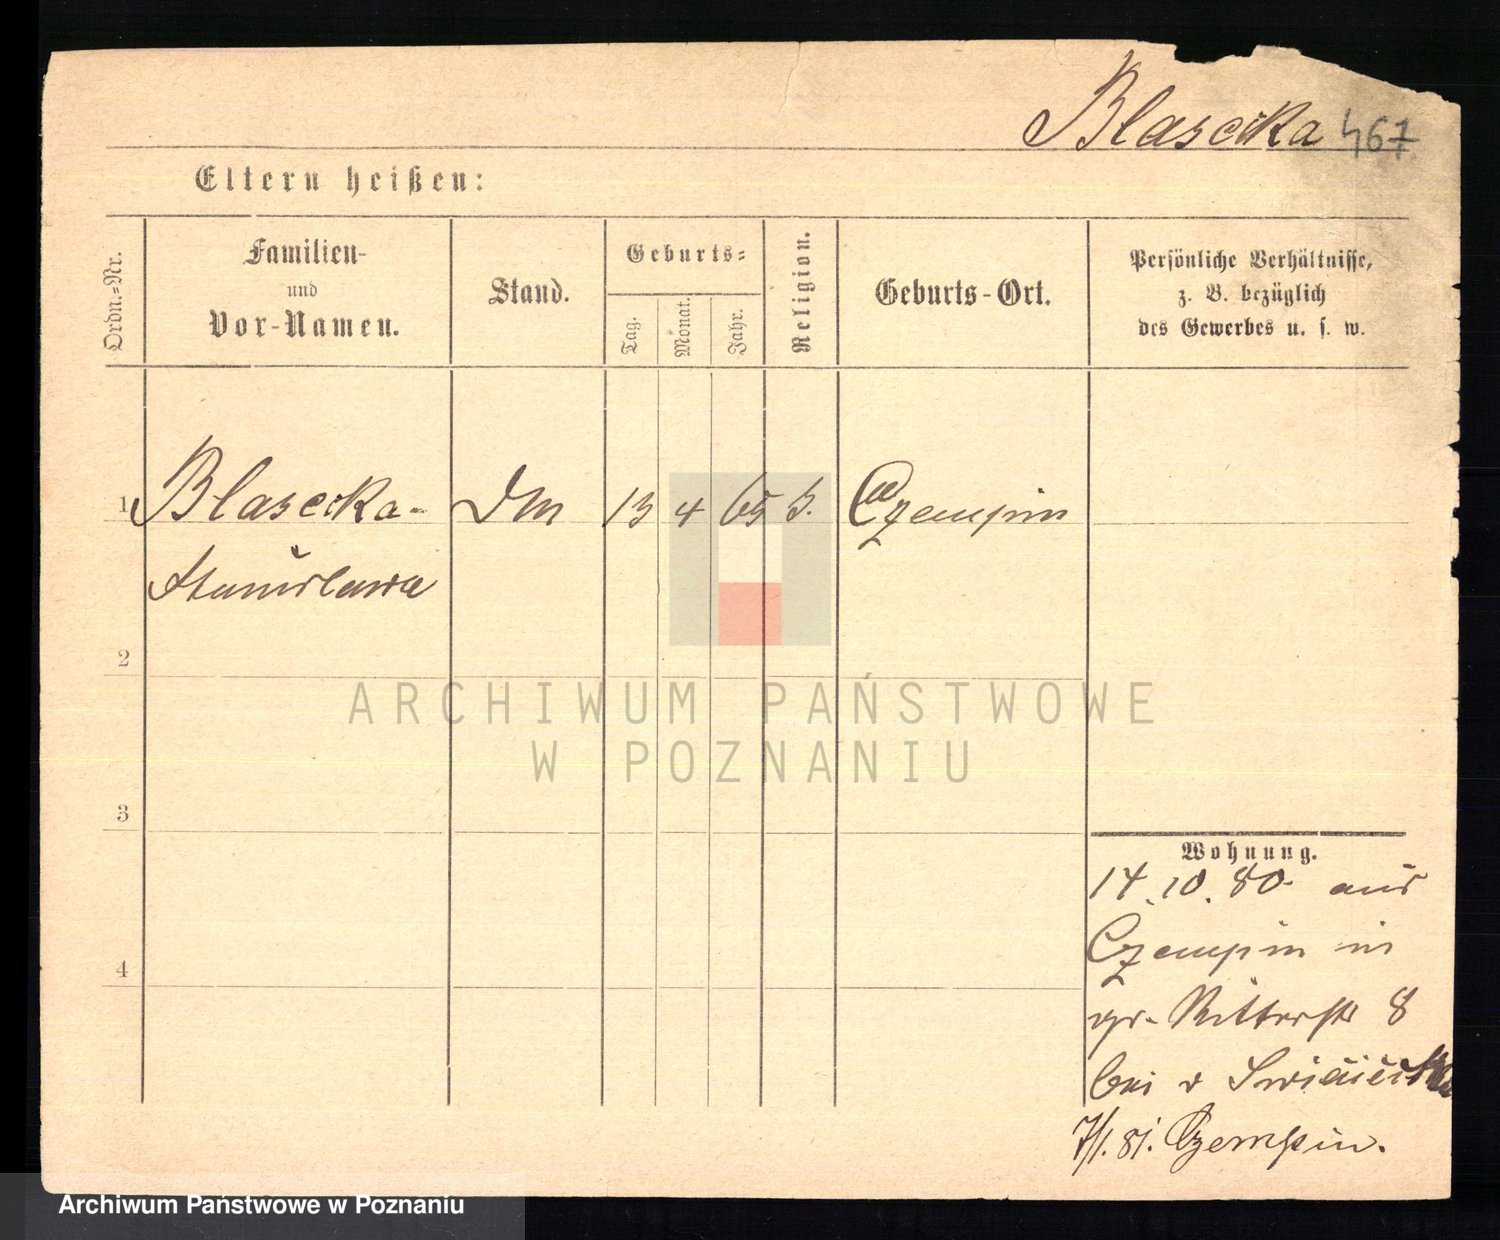 Blascika 467
Eltern heißen:
Ordn.=Nr.
Familien-
und
Vor-Namen.
Stand.
Geburts=
Tag.
Monat.
Jahr.
Religion.
Geburts-Ort.
Persönliche Verhältnisse,
z. B. bezüglich
des Gewerbes u. s. w.
1 Blascika- 13 4 65 Czempin
Stanislawa
2
3
4
Wohnung.
14.10.80. aus
Czempin in
gr. Ritterstr 8
bei v
7/1.81. Czempin.
ARCHIWUM PAŃSTWOWE
W POZNANIU
Archiwum Państwowe w Poznaniu